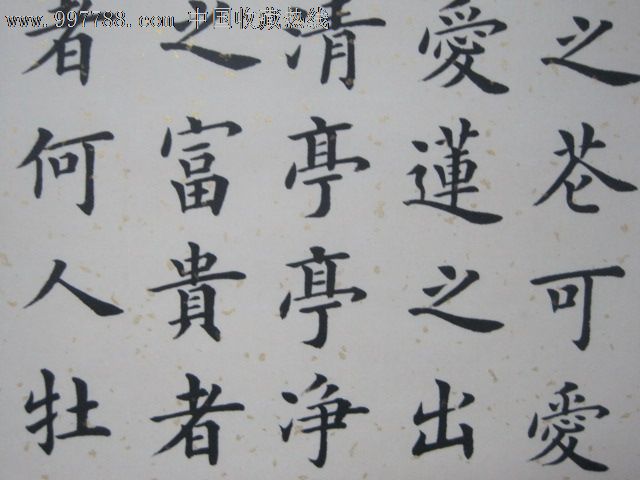 www.997788.com 中国收藏热线
之花可爱
愛蓮之出
清亭亭净
之富貴者
者何人牡